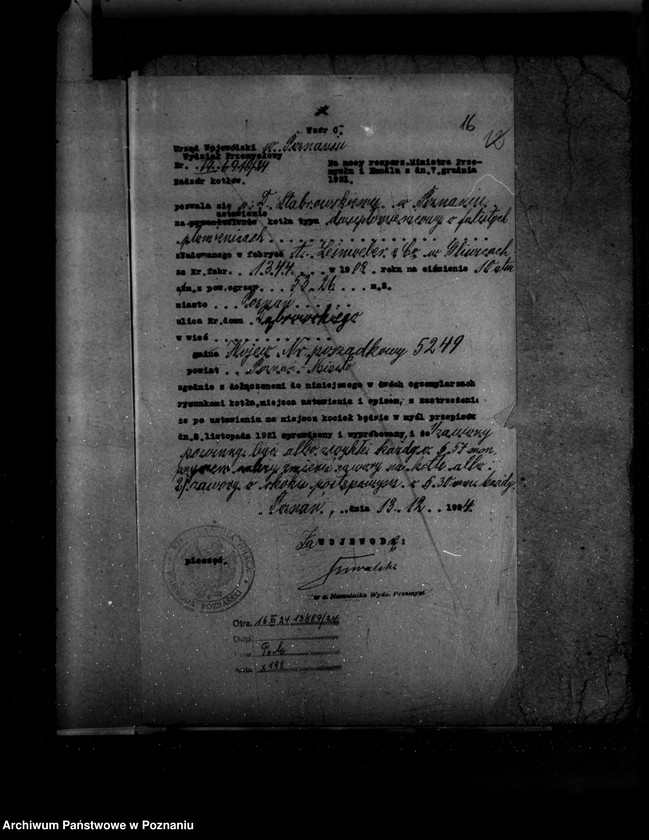 16
Wzór 6.
Urząd Wojewódzki w Poznaniu
Wydział Przemysłowy
Nr.
Nadzór kotłów.
Na mocy rozporz. Ministra Prze-
mysłu i Handlu z dn. 7. grudnia
1921.
pozwala się p. F. Dabrowskiemu w Poznaniu
ustawienie
na kotła typu dwupłomienicowy o falistych
płomienicach
zbudowanego w fabryce w Gliwicach
za Nr. fabr. 1344 w 1902 roku na ciśnienie 10 atm
atm. z pow. ogrzew. 53.26 m.2.
miasto Poznań
ulica Nr. domu Dąbrowskiego
w wsi
gmina Wojew. No porządkowy 5249
powiat Poznań-Miasto
zgodnie z dołączonemi do niniejszego w dwóch egzemplarzach
rysunkami kotła, miejsca ustawienia i opisem, z zastrzeżeniem
że po ustawieniu na miejscu kocioł będzie w myśl przepisów
dn. 8. listopada 1921 sprawdzony i wypróbowany, i że zawory
powinny być albo zwykłe każdy o φ 57 mm,
zawory na kotle albo
2) zawory o skoku φ 38 mm każdy.
Poznań, dnia 13.12. 1924.
Za WOJEWODĘ:
pieczęć.
w z. Naczelnika Wydz. Przemysł.
WOJEWODA POZNAŃSKI
Otrz. 16 XII 24
Odp.
Archiwum Państwowe w Poznaniu